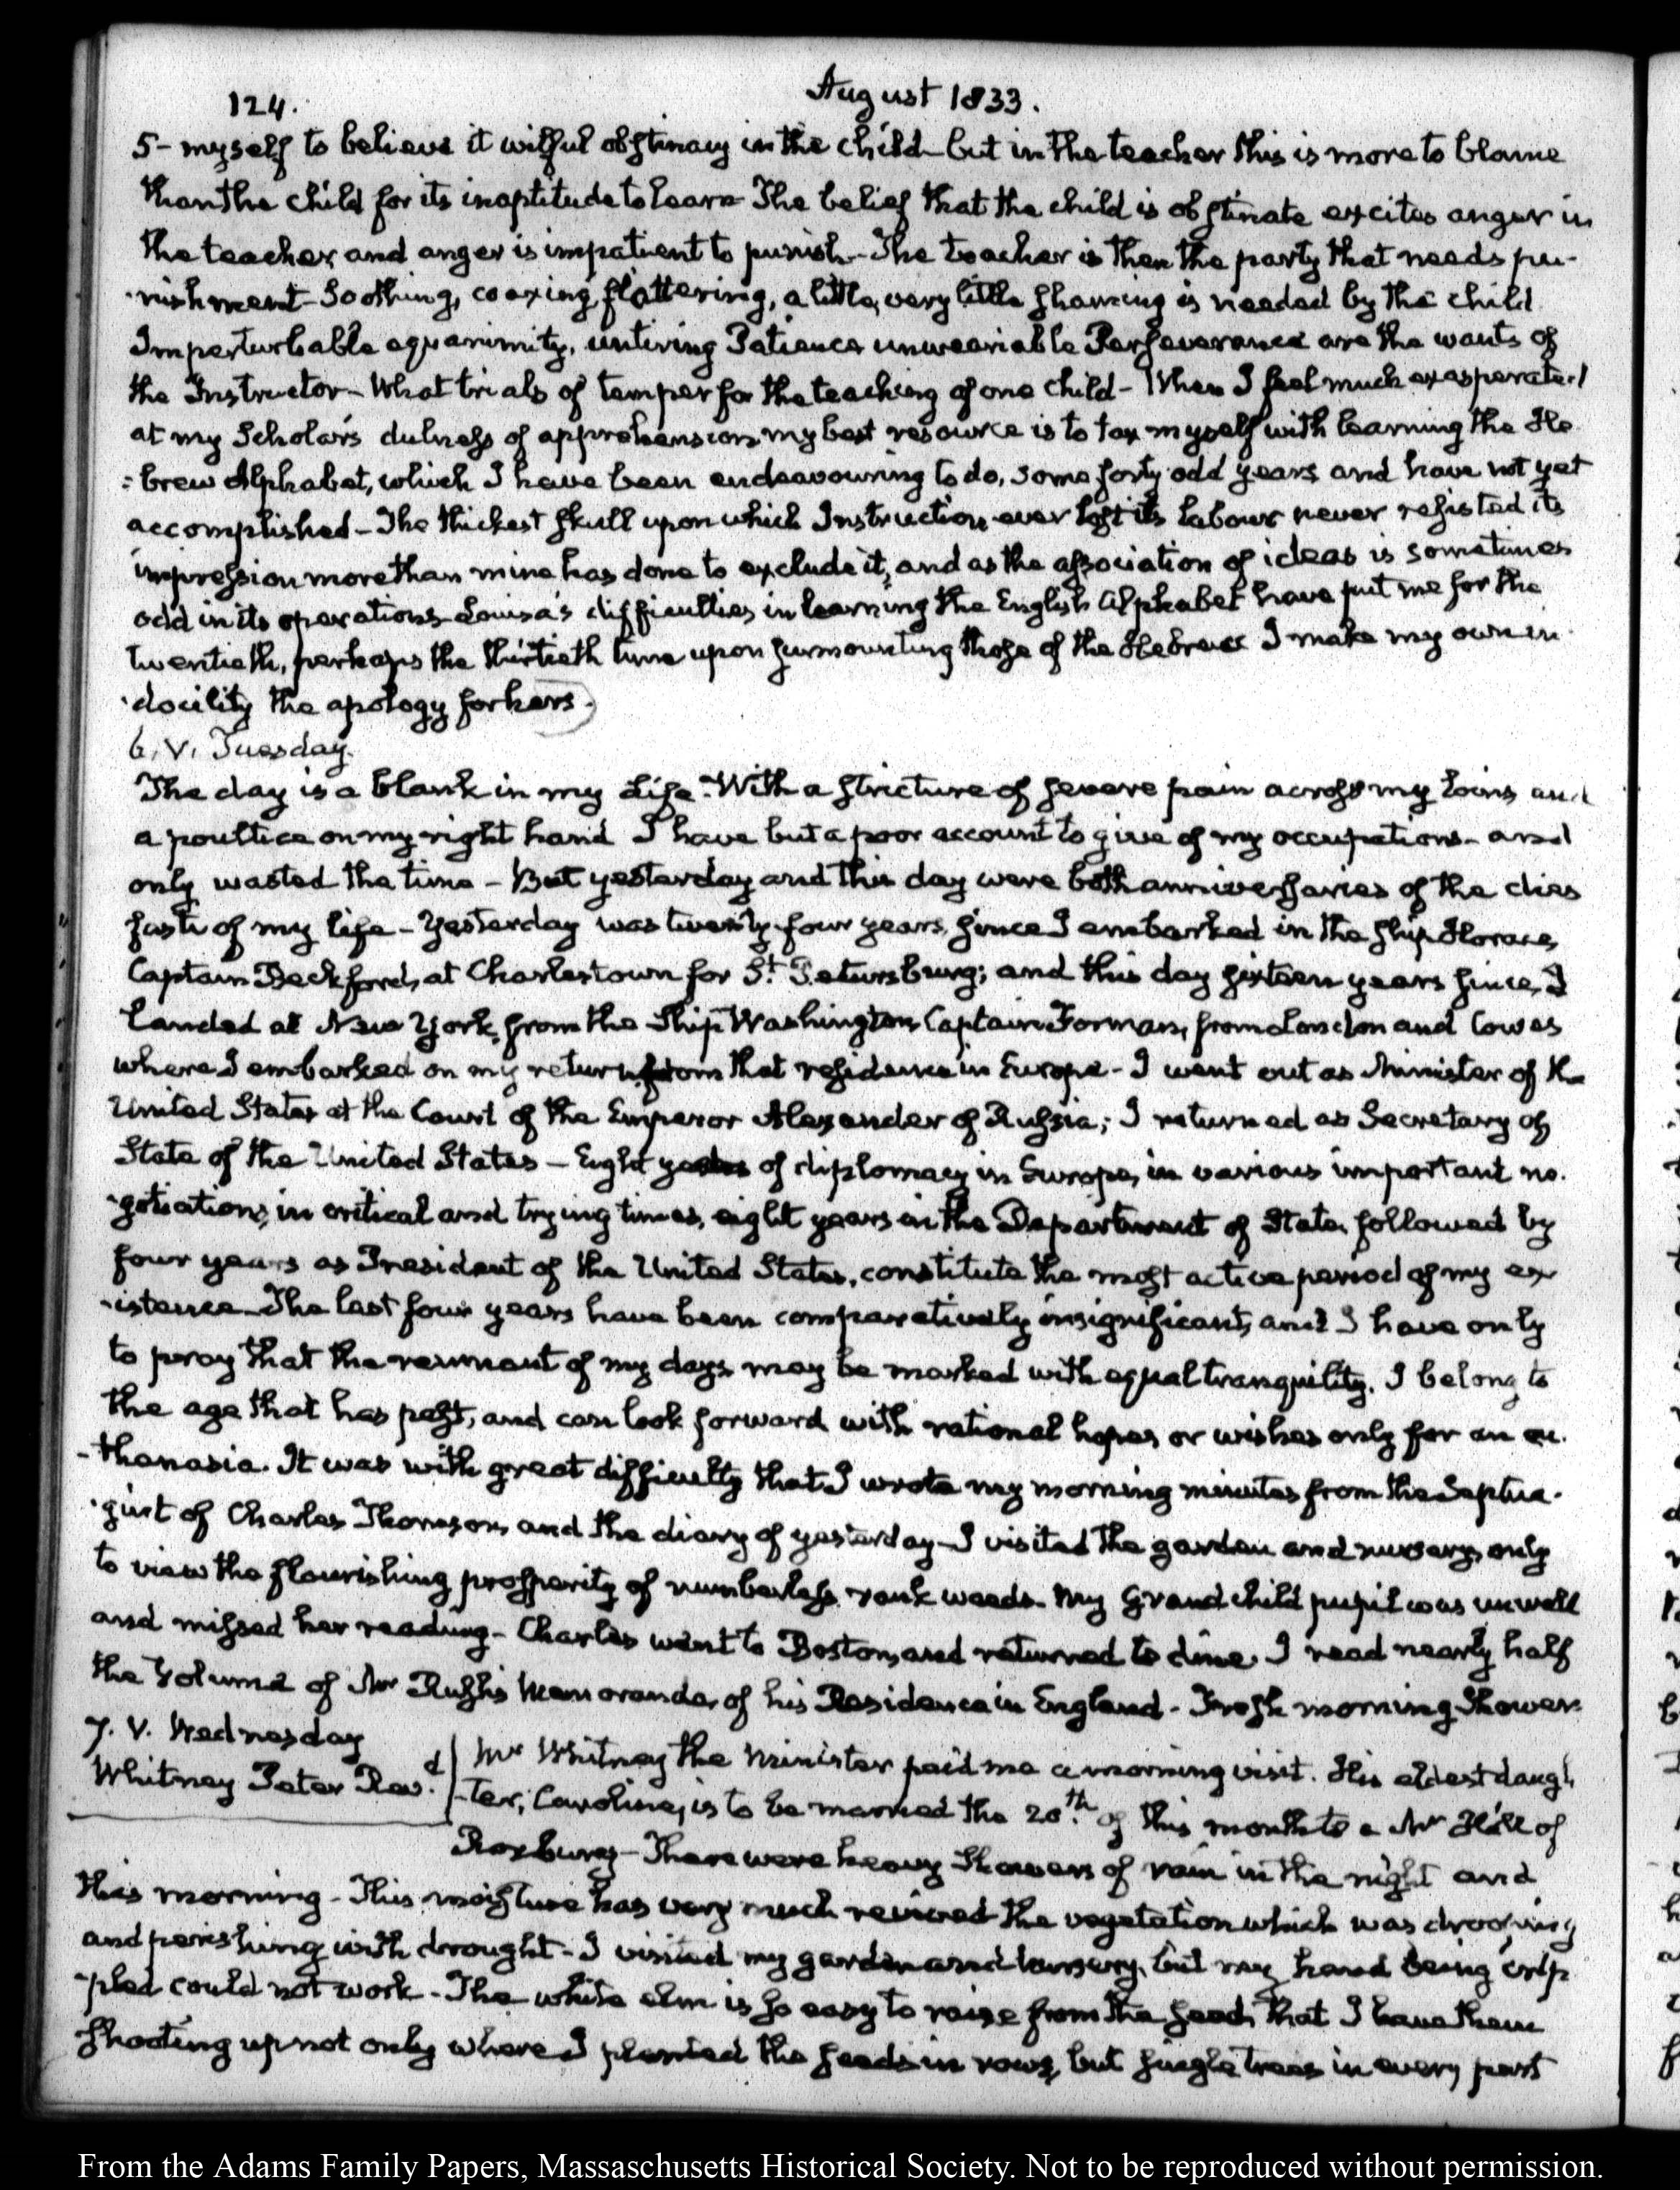 124.
August 1833.
5- myself to believe it wilful obstinacy in the child but in the teacher this is more to blame
than the child for its inaptitude to learn- The belief that the child is obstinate excites anger in
the teacher, and anger is impatient to punish- The teacher is then the party that needs pu-
-nishment- Soothing, coaxing, flattering, a little, very little shaming is needed by the child
Imperturbable equanimity, untiring Patience unweariable Perseverance are the wants of
the Instructor- What trials of temper for the teaching of one child- When I feel much exasperated
at my Scholar's dulness of apprehension my best resource is to tax myself with learning the He-
-brew Alphabet, which I have been endeavouring to do, some forty odd years and have not yet
accomplished- The thickest skull upon which Instruction ever lost its labour never resisted its
impression more than mine has done to exclude it; and as the association of ideas is sometimes
odd in its operations Louisa's difficulties in learning the English Alphabet have put me for the
twentieth, perhaps the thirtieth time upon surmounting those of the Hebrew I make my own in-
-docility the apology for hers.
6. V. Tuesday.
The day is a blank in my Life. With a stricture of severe pain across my loins and
a poultice on my right hand I have but a poor account to give of my occupations- and
only wasted the time- But yesterday and this day were both anniversaries of the dies
fasti of my life- Yesterday was twenty-four years, since I embarked in the ship Horace,
Captain Beckford, at Charlestown for St. Petersburg; and this day sixteen years since, I
landed at New York, from the Ship Washington, Captain Forman, from London and Cowes
where I embarked on my return from that residence in Europe- I went out as Minister of the
United States at the Court of the Emperor Alexander of Russia; I returned as Secretary of
State of the United States- Eight years of diplomacy in Europe, in various important ne-
-gotiations, in critical and trying times, eight years in the Department of State, followed by
four years as President of the United States, constitute the most active period of my ex-
-istence. The last four years have been comparatively insignificant, and I have only
to pray that the remnant of my days may be marked with equal tranquility. I belong to
the age that has past, and can look forward with rational hopes or wishes only for an eu-
-thanasia. It was with great difficulty that I wrote my morning minutes from the Septua-
-gint of Charles Thomson, and the diary of yesterday- I visited the garden and nursery, only
to view the flourishing prosperity of numberless rank weeds. My Grandchild pupil was unwell
and missed her reading- Charles went to Boston, and returned to dine. I read nearly half
the Volume of Mr Rush's Memoranda, of his Residence in England- Fresh morning Shower.
7. V. Wednesday
Whitney Peter Revd.
Mr Whitney the Minister paid me a morning visit. His eldest daugh-
-ter, Caroline, is to be married the 20th. of this month to a Mr Hall of
Roxbury- There were heavy Showers of rain in the night and
this morning- This moisture has very much revived the vegetation which was drooping
and perishing with drought- I visited my garden and nursery, but my hand being crip-
-pled could not work- The white elm is so easy to raise from the seed, that I have them
shooting up not only where I planted the seeds in rows, but single trees in every part
From the Adams Family Papers, Massachusetts Historical Society. Not to be reproduced without permission.